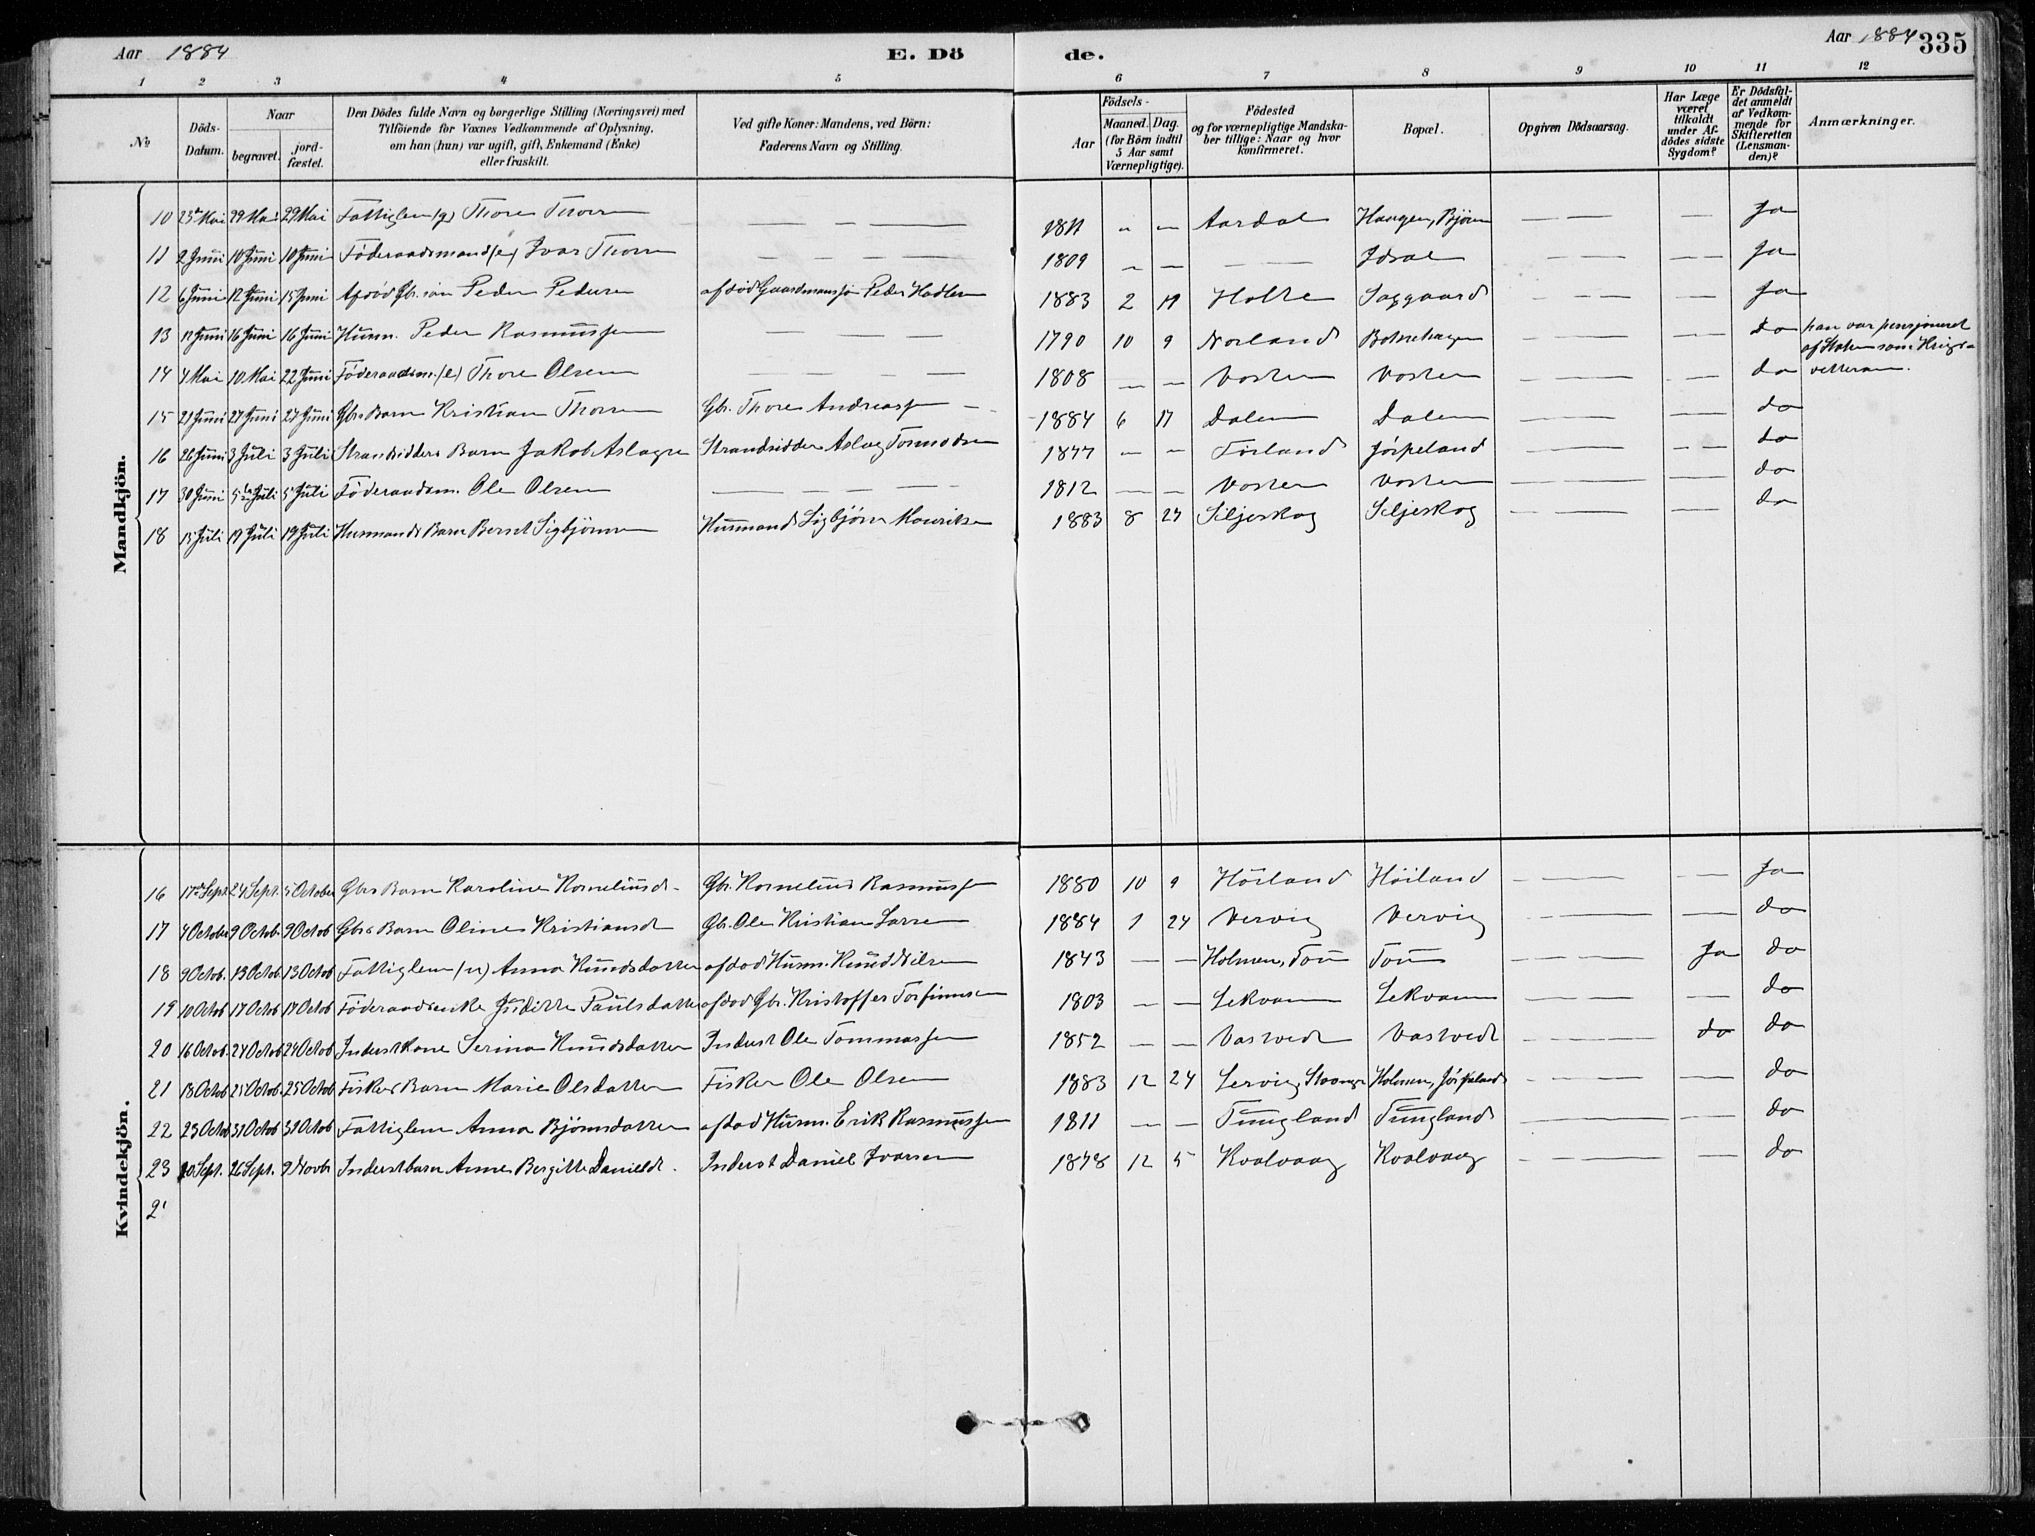 Aar 1884 E. Dö de. Aar 1884 335
1 2 3 4 5 6 7 8 9 10 11 12
No
Döds-Datum.
Naar
begravet.
jord-fæstet.
Den Dödes fulde Navn og borgerlige Stilling (Næringsvei) med
Tilföiende for Voxnes Vedkommende af Oplysning,
om han (hun) var ugift, gift, Enkemand (Enke)
eller fraskilt.
Ved gifte Koner: Mandens, ved Börn:
Faderens Navn og Stilling.
Födsels-
Aar
Maaned. Dag.
(for Börn indtil
5 Aar samt
Værnepligtige).
Födested
og for værnepligtige Mandska-
ber tillige: Naar og hvor
konfirmeret.
Bopæl.
Opgiven Dödsaarsag.
Har Læge
været
tilkaldt
under Af-
dödes sidste
Sygdom?
Er Dödsfal-
det anmeldt
af Vedkom-
mende for
Skifteretten
(Lensman-
den)?
Anmærkninger.
Mandkjön.
10 23de Mai 29 Mai 29 Mai Fattiglem (g) Thore Thorsen — — — 1811 — — Aardal Haugen, Björn — — — Ja
11 2 Juni 10 Juni 10 Juni Föderaadsmand (e) Ivar Thorsen — — — 1809 — — — — Idsal — — — Ja
12 6 Juni 12 Juni 15 Juni Afdöd Gbr. sön Peder Pedersen afdöd Gaardmanssön Peder Hadlen 1883 2 11 Holte Saggaard — — — Ja
13 12 Juni 16 Juni 16 Juni Husm. Peder Rasmussen — — — 1790 10 9 Norland Botnehagen — — — Do han var pensjoneret
af Staten som Krigs-
14 4 Mai 10 Mai 22 Juni Föderaadsm. (e) Thore Olsen — — — 1808 — — Vosten Vosten — — — do vetteran.
15 21 Juni 27 Juni 27 Juni Gbrs Barn Kristian Thorsen Gbr. Thore Andreassen 1884 6 17 Dalen Dalen — — — do
16 26 Juni 3 Juli 3 Juli Strandsidders Barn Jakob Aslagsen Strandsidder Aslag Tormodsen 1877 — — Förland Jörpeland — — — do
17 30 Juni 5te Juli 5 Juli Föderaadsm. Ole Olsen — — — 1812 — — Vosten Vosten — — — do
18 13 Juli 19 Juli 19 Juli Husmands Barn Bernt Sigbjörnsen Husmand Sigbjörn Mouritsen 1883 8 27 Siljeskog Siljeskog — — — do
Kvindekjön.
16 17de Sept. 24 Sept. 5 October Gbrs Barn Karoline Korneliusd. Gbr. Kornelius Rasmussen 1880 10 9 Höiland Höiland — — — Ja
17 4 October 9 Octob. 9 Octob Gbrs Barn Oline Kristiansd Gbr. Ole Kristian Larsen 1884 1 24 Vervig Vervig — — — do
18 9 Octob. 13 Octob 13 Octob Fattiglem (u) Anna Knudsdatter afdöd Husm. Knud Nilsen 1843 — — Holmen, Tou Tou — — Ja do
19 10 Octob 17 Octob 17 Octob Föderaadsenke Juditte Paulsdatter afdöd Gbr. Kristoffer Torfinnsen 1803 — — Lekvam Lekvam — — — do
20 16 Octob. 24 Octob. 24 Octob. Inderstkone Serina Knudsdatter Inderst Ole Tommassen 1852 — — Vasvedt Vasvedt — — do do
21 18 Octob. 25 Octob. 25 Octob. Fiskers Barn Marie Olsdatter Fisker Ole Olsen 1883 12 24 Lervig, Stavanger Holmen, Jörpeland — — — do
22 23 Octob 31 Octob 31 Octob Fattiglem Anna Bjönnsdatter afdöd Husm. Erik Rasmussen 1811 — — Tungland Tungland — — — do
23 20 Sept. 26 Sept. 9 Novbr Inderstbarn Anne Bergitte Danieldt. Inderst Daniel Ivarsen 1878 12 5 Kvalvaag Kvalvaag — — — do
2